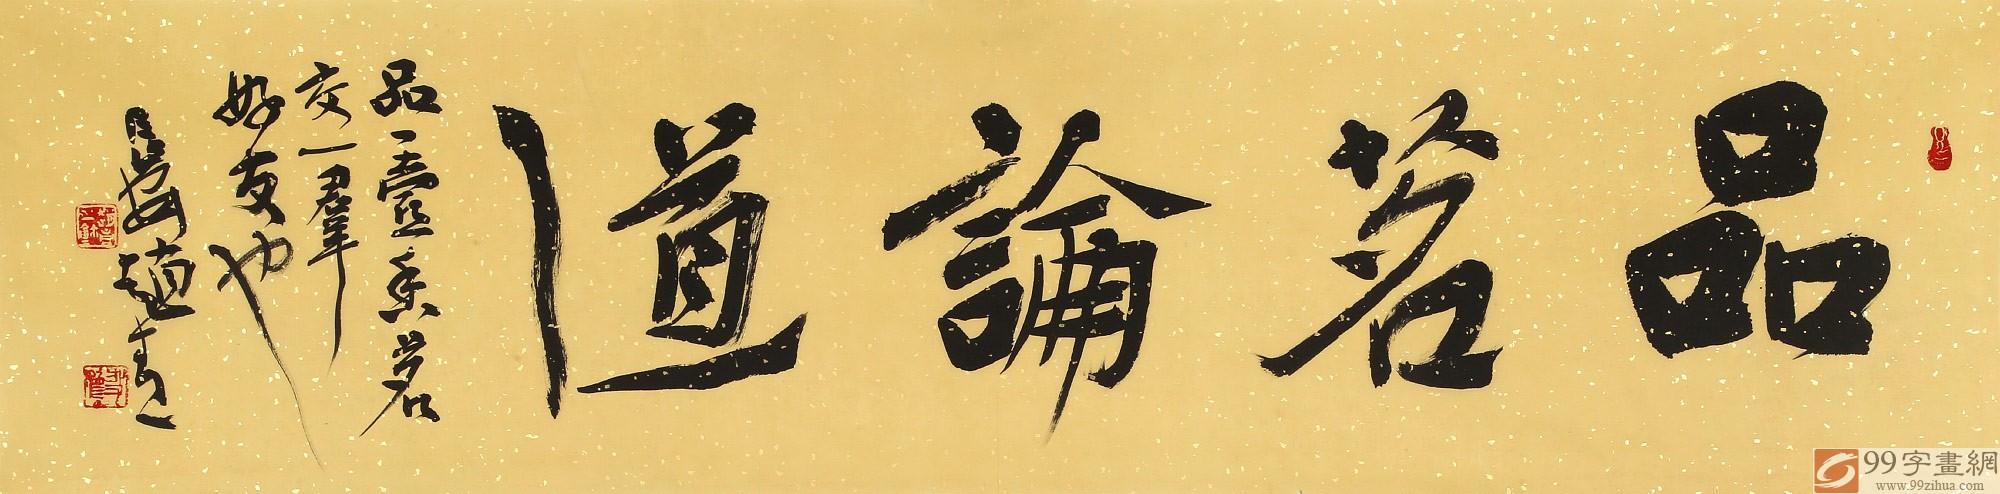 品茗論道
品一壺香茗
交一羣
好友也
99字畫網
www.99zihua.com